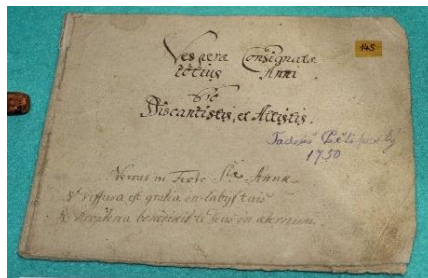 Vesperæ Consignatæ
totius Anni
145
Discantistis, et Altistis.
Tadeáš
1750
Versus in Festo Stæ Annæ
℣ Diffusa est gratia in labijs tuis
℟ Propterea benedixit te Deus in æternum.